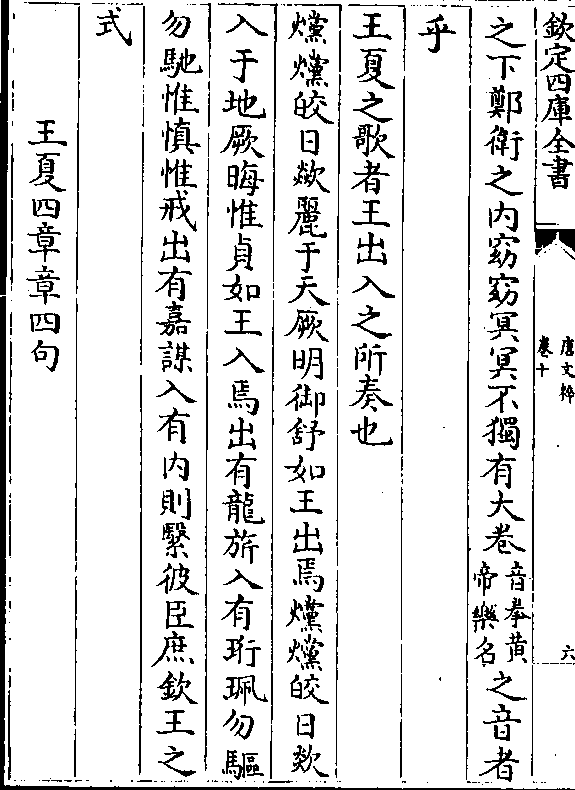 欽定四庫全書
唐文粹
卷十
六
之下鄭衛之内窈窈冥冥不獨有大卷音拳黄帝樂名之音者
乎
王夏之歌者王出入之所奏也
爣爣皎日歘麗于天厥明御舒如王出焉爣爣皎日歘
入于地厥晦惟貞如王入焉出有龍旂入有珩珮勿驅
勿馳惟慎惟戒出有嘉謀入有内則繄彼臣庶欽王之
式
王夏四章章四句